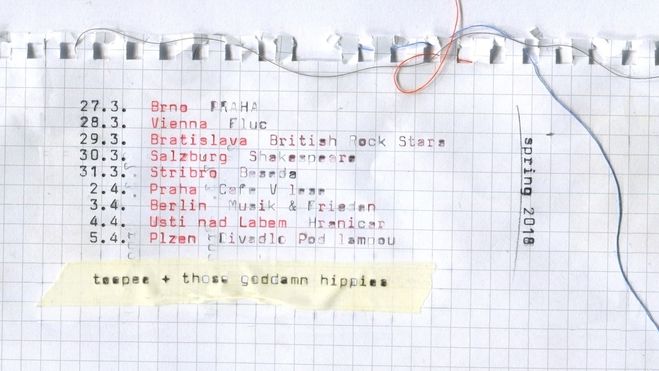 27.3. Brno PRAHA
28.3. Vienna Fluc
29.3. Bratislava British Rock Stars
30.3. Salzburg Shakespeare
31.3. Stribro Beseda
2.4. Praha Cafe V lese
3.4. Berlin Musik & Frieden
4.4. Usti nad Labem Hranicar
5.4. Plzen Divadlo Pod lampou
spring 2018
teepee + those goddamn hippies